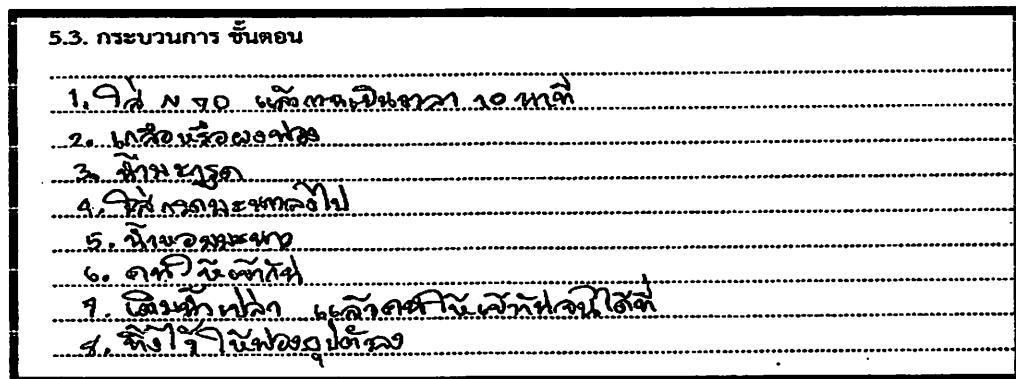 5.3. กระบวนการ ขั้นตอน
1. ใส่ N 70 แล้วกวนเป็นเวลา 10 นาที
2. เกลือหรือผงฟอง
3. น้ำมะกรูด
4. ใส่กรดมะนาวลงไป
5. น้ำหอมมะนาว
6. คนให้เข้ากัน
7. เติมน้ำเปล่า แล้วคนให้เข้ากันจนได้ที่
8. ทิ้งไว้ให้ฟองยุปตัวลง